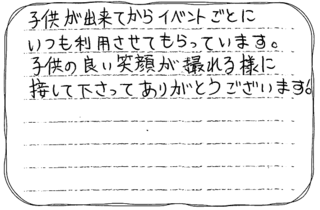 子供が出来てからイベントごとに
いつも利用させてもらっています。
子供の良い笑顔が撮れる様に
接して下さってありがとうございます!